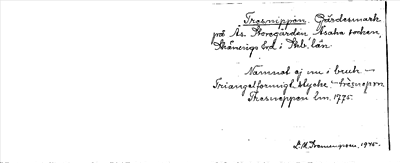 Tresnippan. Gärdesmark
på Ås, Storegården Åsaka socken,
Skånings hd. i Skb. län.
Namnet ej nu i bruk —
Triangelformigt stycke. — trèsnepm
Tresneppan lm. 1775.
1945.